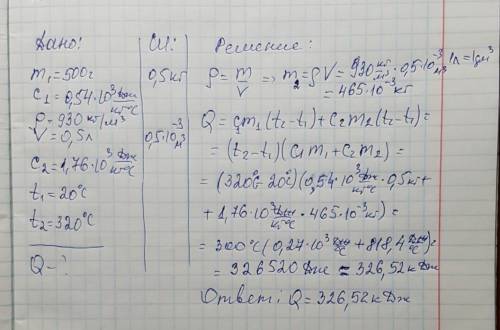 Дано:
m₁=500г
c₁=0,54·10³ Дж/кг°C
ρ=930 кг/м³
V=0,5л
c₂=1,76·10³ Дж/кг°C
t₁=20°C
t₂=320°C
Q-?
СИ:
0,5кг
0,5·10⁻³м³
Решение:
ρ=m/V => m₂=ρV=930 кг/м³·0,5·10⁻³м³=
1л=1дм³
=465·10⁻³кг
Q=c₁m₁(t₂-t₁)+c₂m₂(t₂-t₁)=
=(t₂-t₁)(c₁m₁+c₂m₂)=
=(320°C-20°C)(0,54·10³ Дж/кг°C·0,5кг+
+1,76·10³ Дж/кг°C·465·10⁻³кг)=
=300°C(0,27·10³ Дж/°C+818,4 Дж/°C)=
=326520Дж=326,52кДж
Ответ: Q=326,52кДж